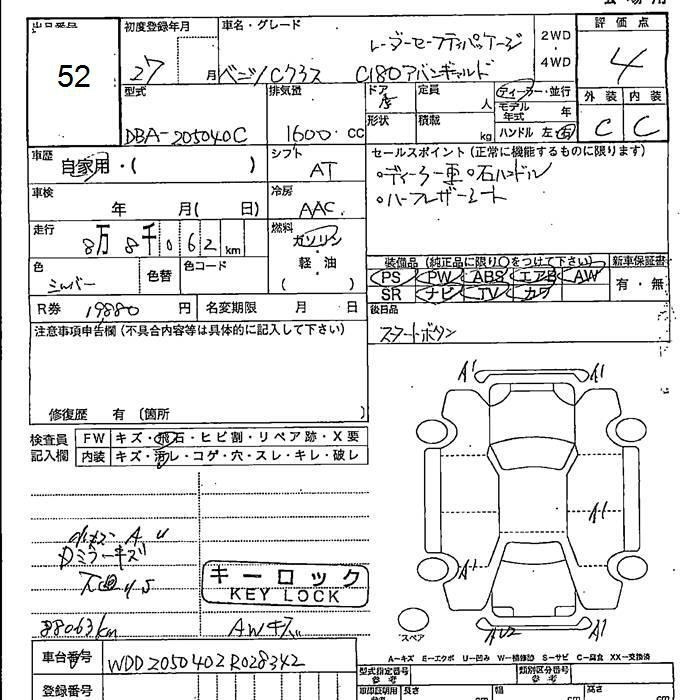 出品番号
52
初度登録年月
27 月
車名・グレード
レーダーセーフティパッケージ
ベンツCクラス C180アバンギャルド
2WD
・
4WD
評価点
4
外装 内装
C C
型式
DBA-205040C
排気量
1600 CC
ドア
5
定員
人
形状
積載
kg
ディーラー・並行
モデル年式 年
ハンドル 左・右
車歴
自家用・( )
シフト
AT
車検
年 月( 日)
冷房
AAC
走行
8万 8千 0 6 2 km
燃料
ガソリン
・
軽・油
( )
色
シルバー
色替
色コード
R券 19880 円
名変期限 月 日
セールスポイント (正常に機能するものに限ります)
・ディーラー車 ・右ハンドル
・ハーフレザーシート
装備品 (純正品に限り○をつけて下さい)
新車保証書
PS PW ABS エアB AW
SR ナビ TV カワ
有・無
後日品
スタートボタン
注意事項申告欄 (不具合内容等は具体的に記入して下さい)
修復歴 有 (箇所 )
検査員記入欄
FW キズ・飛石・ヒビ割・リペア跡・X要
内装 キズ・汚レ・コゲ・穴・スレ・キレ・破レ
Dミラーキズ
下廻りS
キーロック
KEY LOCK
88063km
AWキズ
A1 A1
A1
A1
AU2 A1
スペア
A-キズ E-エクボ U-凹み W-補修跡 S-サビ C-腐食 XX-交換済
車台番号
WDD2050402R028342
登録番号
型式指定番号
参考
類別区分番号
参考
長さ cm
幅 cm
高さ cm